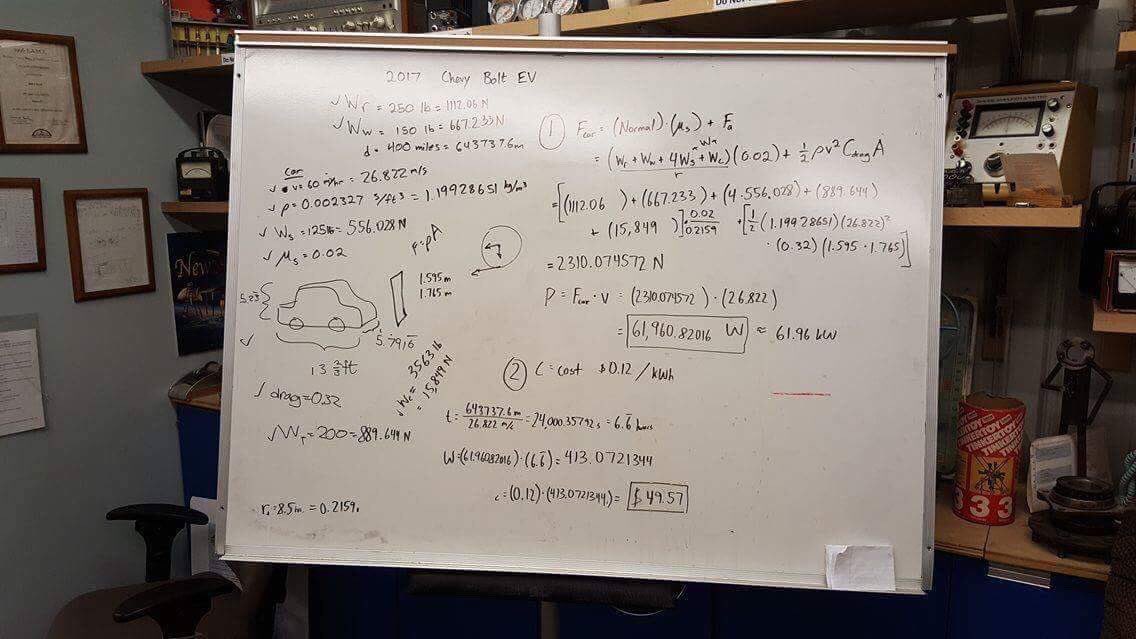 2017 Chevy Bolt EV
✓ Wr = 250 lb = 1112.06 N
✓ Ww = 150 lb = 667.233 N
d = 400 miles = 643737.6m
Car
✓ v = 60 mi/hr = 26.822 m/s
✓ ρ = 0.002327 s/ft³ = 1.19928651 kg/m³
✓ Ws = 125 lb = 556.028 N
✓ μs = 0.02
F = PA
1.595 m
1.765 m
5.23
5.7916̄
✓
13 2/3 ft
✓ Wc = 3563 lb
= 15,849 N
✓ drag = 0.32
✓ Wr = 200 = 889.644 N
r. = 8.5 in. = 0.2159
① Fcar = (Normal)·(μs) + Fa
= (Wr + Ww + 4Ws + Wr + Wc)(0.02) / r + ½ρv²CdragA
= [(1112.06) + (667.233) + (4·556.028) + (889.644)
+ (15,849)]·0.02/0.2159 + [½(1.19928651)(26.822)²
·(0.32)(1.595·1.765)]
= 2310.074572 N
P = Fcar·v = (2310.074572)·(26.822)
= 61,960.82016 W ≈ 61.96 kW
② C = cost $0.12/kWh
t = 643737.6m / 26.822 m/s = 24,000.35792 s = 6.6̄ hours
W = (61.96082016)·(6.6̄) = 413.0721344
c = (0.12)·(413.0721344) = $49.57
New
TINKERTOY